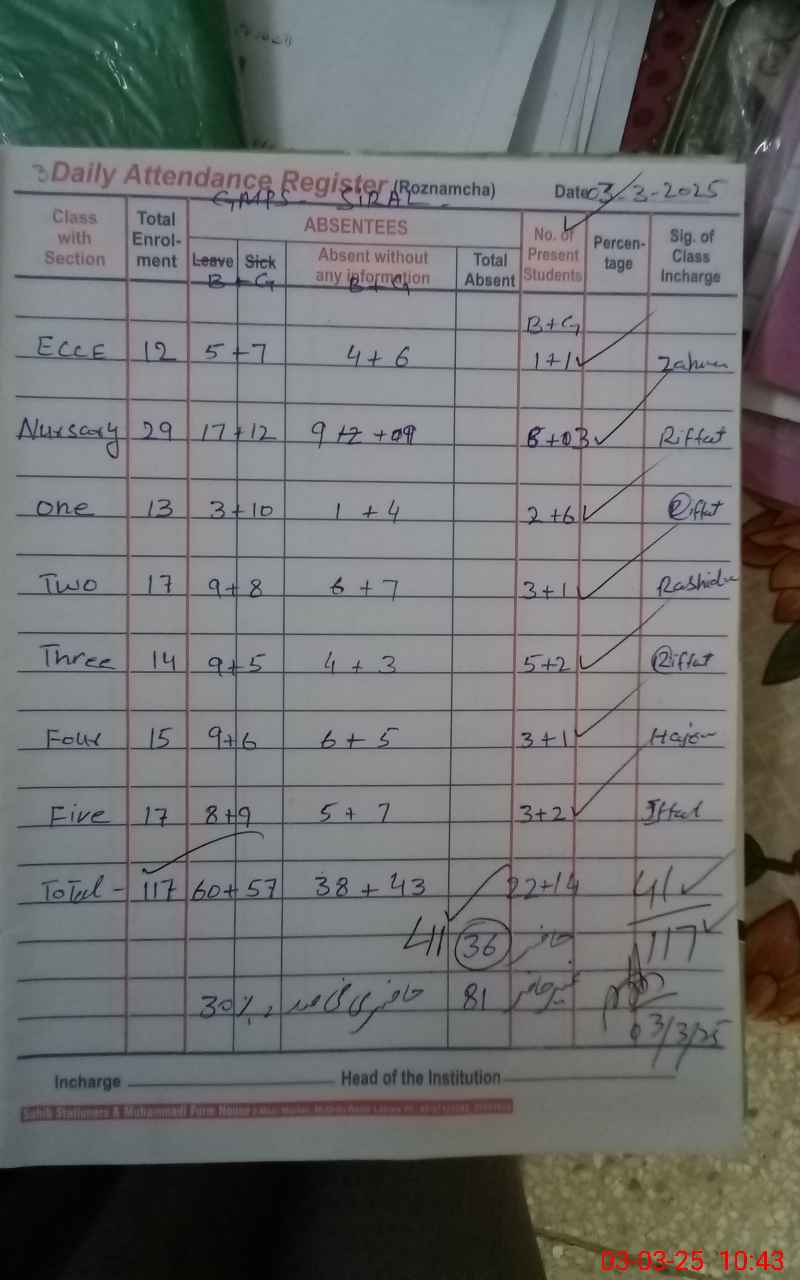 3 Daily Attendance Register (Roznamcha) Date 03-3-2025
GMPS SIRAL
Class with Section
Total Enrol-ment
ABSENTEES
Leave Sick
B + G
Absent without any information
B + G
Total Absent
No. of Present Students
Percen-tage
Sig. of Class Incharge
B+G
ECCE 12 5+7 4+6 1+1
Nursary 29 17+12 +09 +03 Riffat
One 13 3+10 1+4 2+6 Riffat
Two 17 9+8 6+7 3+1 Rashida
Three 14 9+5 4+3 5+2 Riffat
Four 15 9+6 6+5 3+1
Five 17 8+9 5+7 3+2
Total - 117 60+57 38+43 22+14 41
41 36 حاضر 117
30% حاضری فی صد 81 غیر حاضر
03/3/25
Incharge Head of the Institution
Sahib Stationers & Muhammadi Form House
03-03-25 10:43